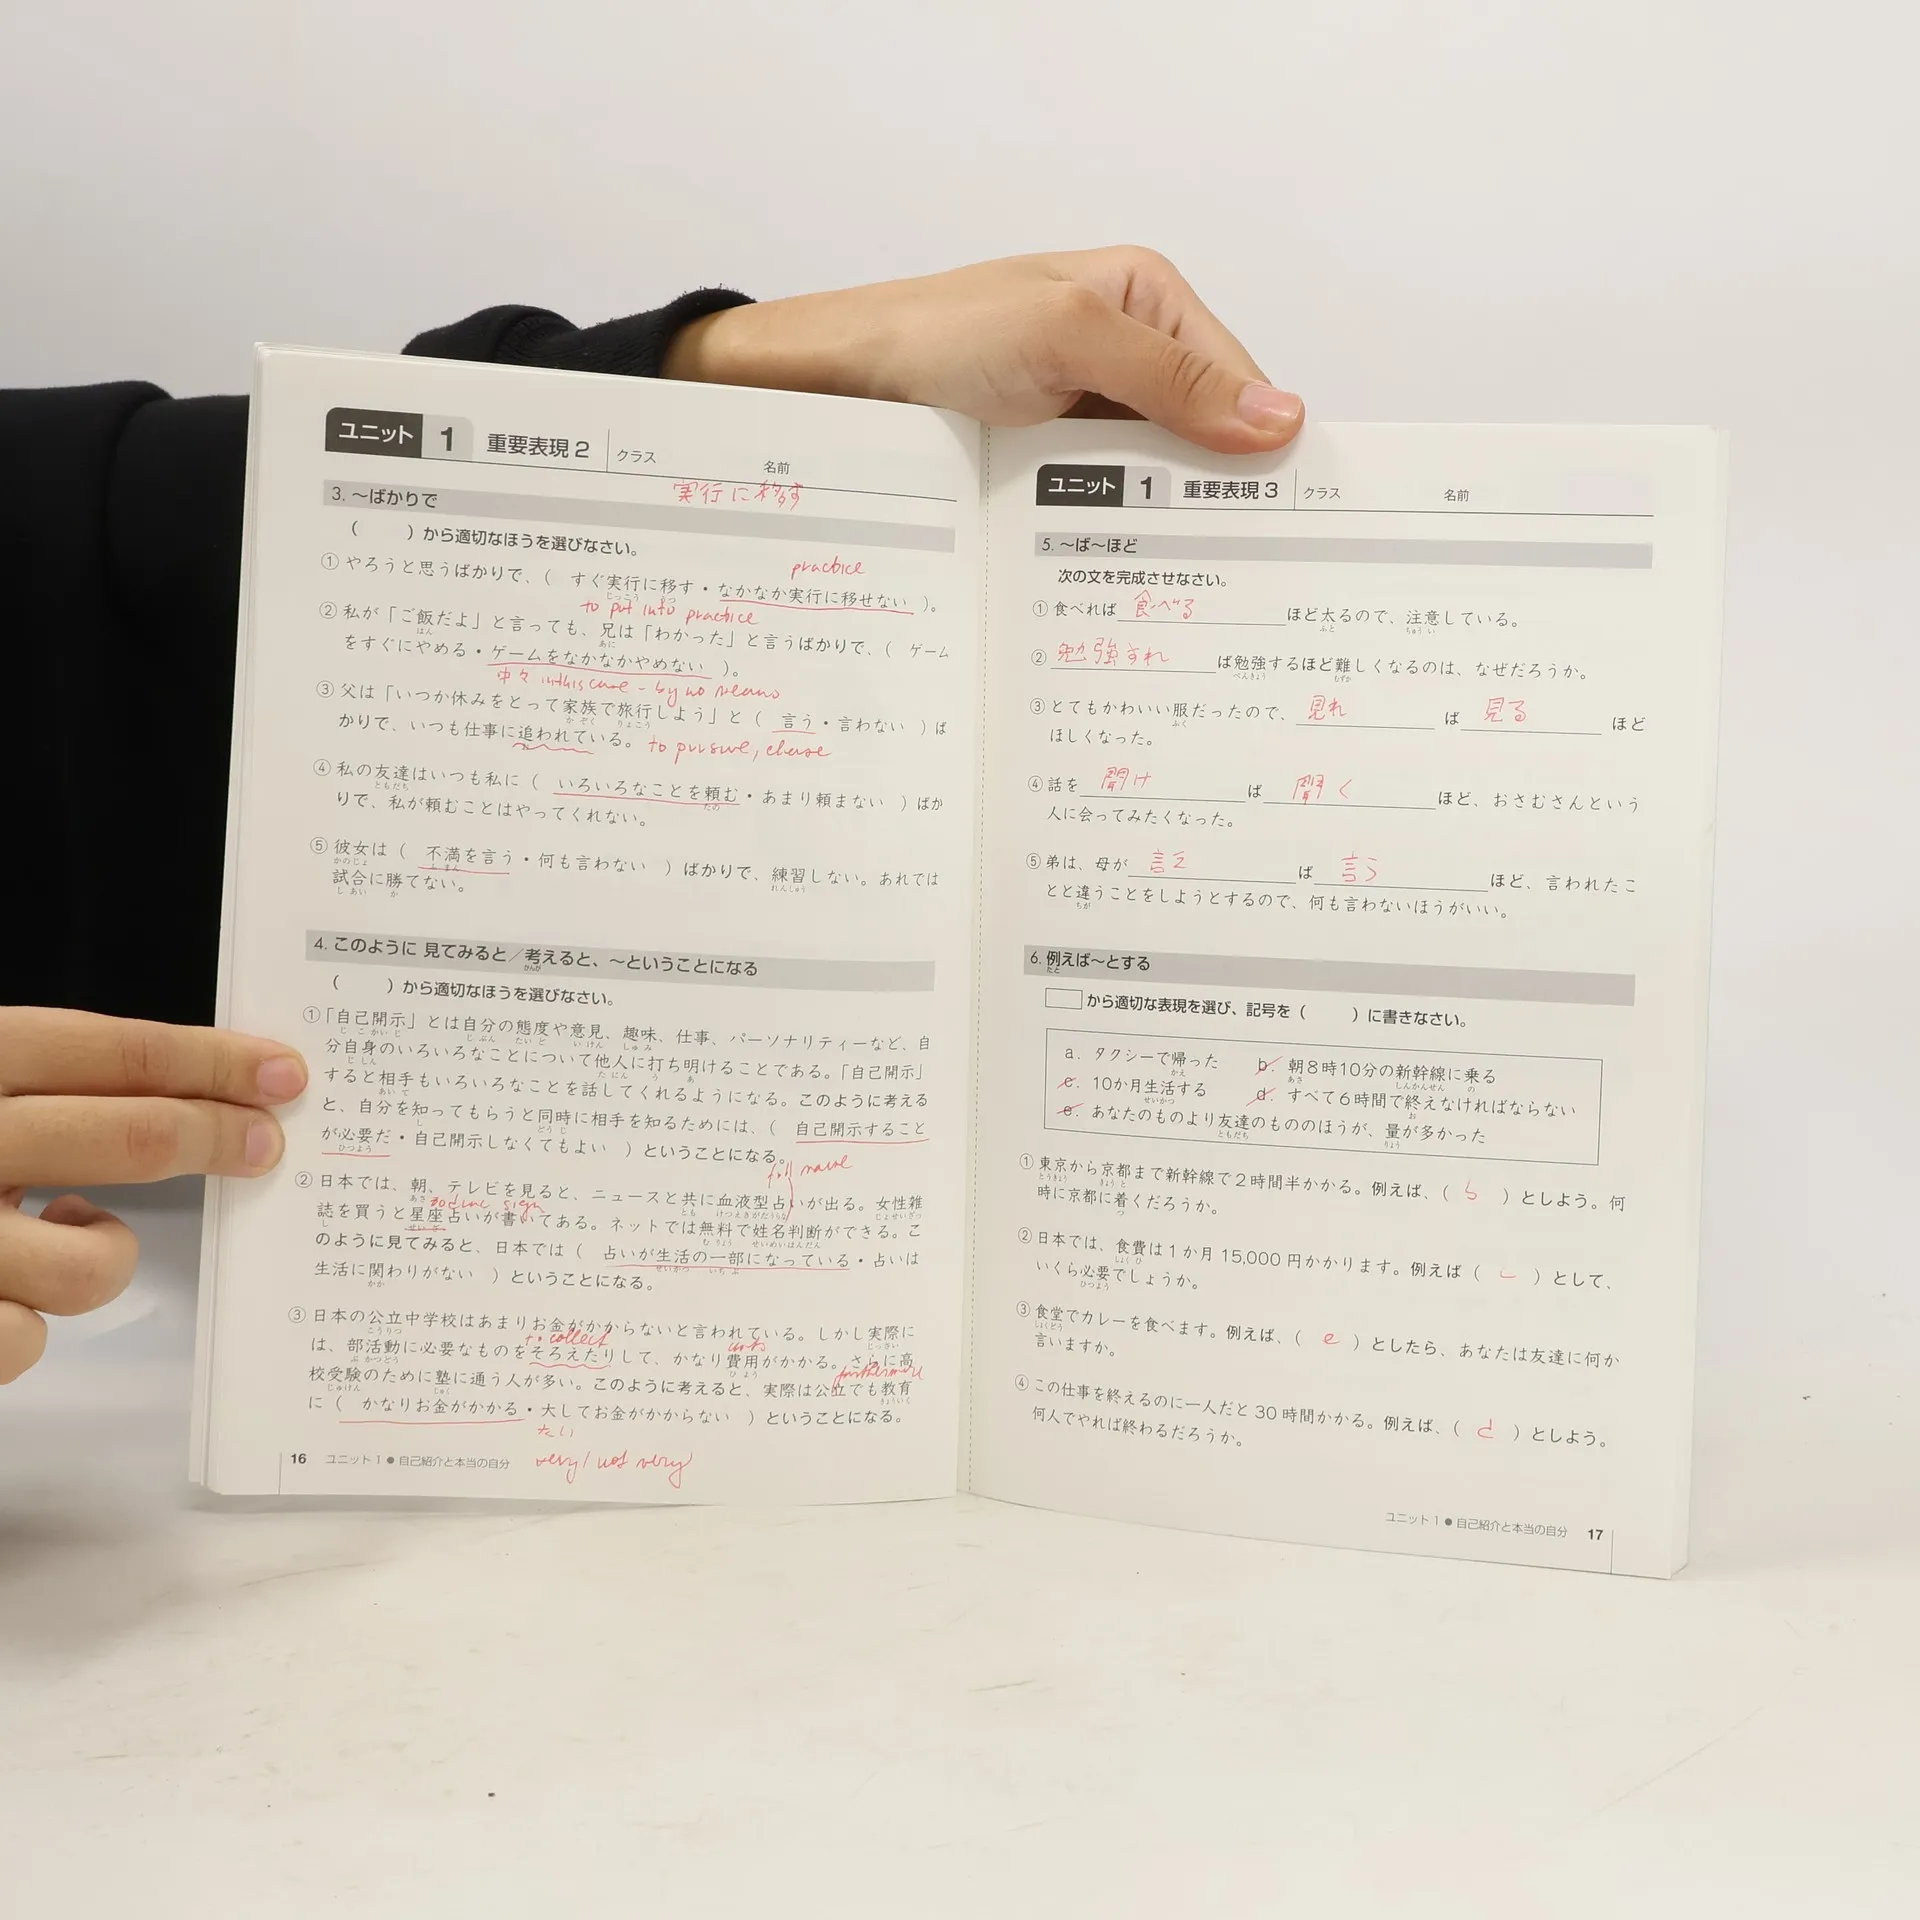 ユニット 1 重要表現 2 クラス 名前
実行に移す
3. ～ばかりで
( )から適切なほうを選びなさい。
practice
① やろうと思うばかりで、( すぐ実行に移す・なかなか実行に移せない )。
じっこう うつ
to put into practice
② 私が「ご飯だよ」と言っても、兄は「わかった」と言うばかりで、( ゲーム
はん あに
をすぐにやめる・ゲームをなかなかやめない )。
中々 in this case - by no means
③ 父は「いつか休みをとって家族で旅行しよう」と( 言う・言わない )ば
かぞく りょこう
かりで、いつも仕事に追われている。 to pursue, chase
お
④ 私の友達はいつも私に( いろいろなことを頼む・あまり頼まない )ばか
ともだち たの
りで、私が頼むことはやってくれない。
⑤ 彼女は( 不満を言う・何も言わない )ばかりで、練習しない。あれでは
かのじょ ふまん れんしゅう
試合に勝てない。
しあい か
4. このように 見てみると／考えると、～ということになる
かんが
( )から適切なほうを選びなさい。
①「自己開示」とは自分の態度や意見、趣味、仕事、パーソナリティーなど、自
じこかいじ じぶん たいど いけん しゅみ
分自身のいろいろなことについて他人に打ち明けることである。「自己開示」
じしん たにん う あ
すると相手もいろいろなことを話してくれるようになる。このように考える
あいて
と、自分を知ってもらうと同時に相手を知るためには、( 自己開示すること
し どうじ
が必要だ・自己開示しなくてもよい )ということになる。
ひつよう
full name
② 日本では、朝、テレビを見ると、ニュースと共に血液型占いが出る。女性雑
あさ zodiac sign とも けつえきがたうらな じょせいざっ
誌を買うと星座占いが書いてある。ネットでは無料で姓名判断ができる。こ
し せいざ むりょう せいめいはんだん
のように見てみると、日本では( 占いが生活の一部になっている・占いは
せいかつ いちぶ
生活に関わりがない )ということになる。
かか
③ 日本の公立中学校はあまりお金がかからないと言われている。しかし実際に
こうりつ to collect じっさい
は、部活動に必要なものをそろえたりして、かなり費用がかかる。さらに高
ぶかつどう ひよう furthermore
校受験のために塾に通う人が多い。このように考えると、実際は公立でも教育
じゅけん じゅく きょういく
に( かなりお金がかかる・大してお金がかからない )ということになる。
たい
very/ not very
16 ユニット 1 ● 自己紹介と本当の自分
ユニット 1 重要表現 3 クラス 名前
5. ～ば～ほど
次の文を完成させなさい。
① 食べれば 食べる ほど太るので、注意している。
ふと ちゅうい
② 勉強すれ ば勉強するほど難しくなるのは、なぜだろうか。
べんきょう むずか
③ とてもかわいい服だったので、 見れ ば 見る ほど
ふく
ほしくなった。
④ 話を 聞け ば 聞く ほど、おさむさんという
人に会ってみたくなった。
⑤ 弟は、母が 言え ば 言う ほど、言われたこ
とと違うことをしようとするので、何も言わないほうがいい。
ちが
6. 例えば～とする
たと
から適切な表現を選び、記号を( )に書きなさい。
a. タクシーで帰った b. 朝8時10分の新幹線に乗る
かえ あさ しんかんせん の
c. 10か月生活する d. すべて6時間で終えなければならない
せいかつ お
e. あなたのものより友達のもののほうが、量が多かった
ともだち りょう
① 東京から京都まで新幹線で2時間半かかる。例えば、( b )としよう。何
とうきょう きょうと
時に京都に着くだろうか。
つ
② 日本では、食費は1か月 15,000 円かかります。例えば( c )として、
しょくひ
いくら必要でしょうか。
ひつよう
③ 食堂でカレーを食べます。例えば、( e )としたら、あなたは友達に何か
しょくどう
言いますか。
④ この仕事を終えるのに一人だと 30 時間かかる。例えば、( d )としよう。
何人でやれば終わるだろうか。
ユニット 1 ● 自己紹介と本当の自分 17